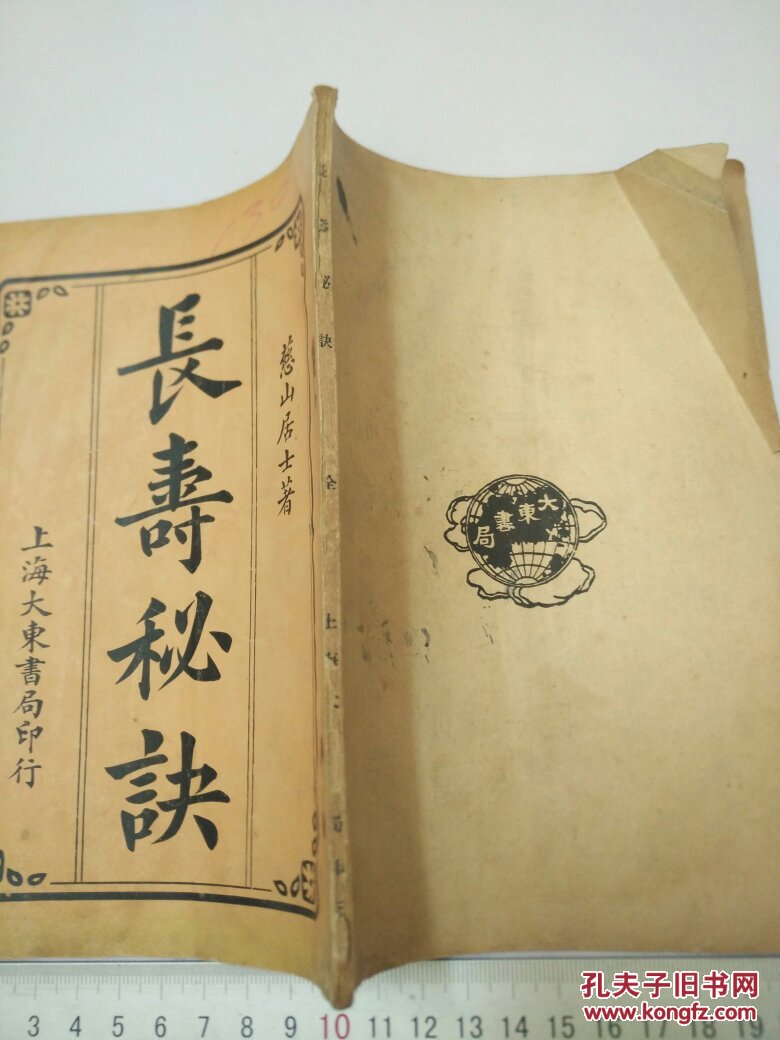 慈山居士著
長壽秘訣
上海大東書局印行
秘訣
全
上
大東書局
孔夫子旧书网
www.kongfz.com
3 4 5 6 7 8 9 10 11 12 13 14 15 16 17 18 19